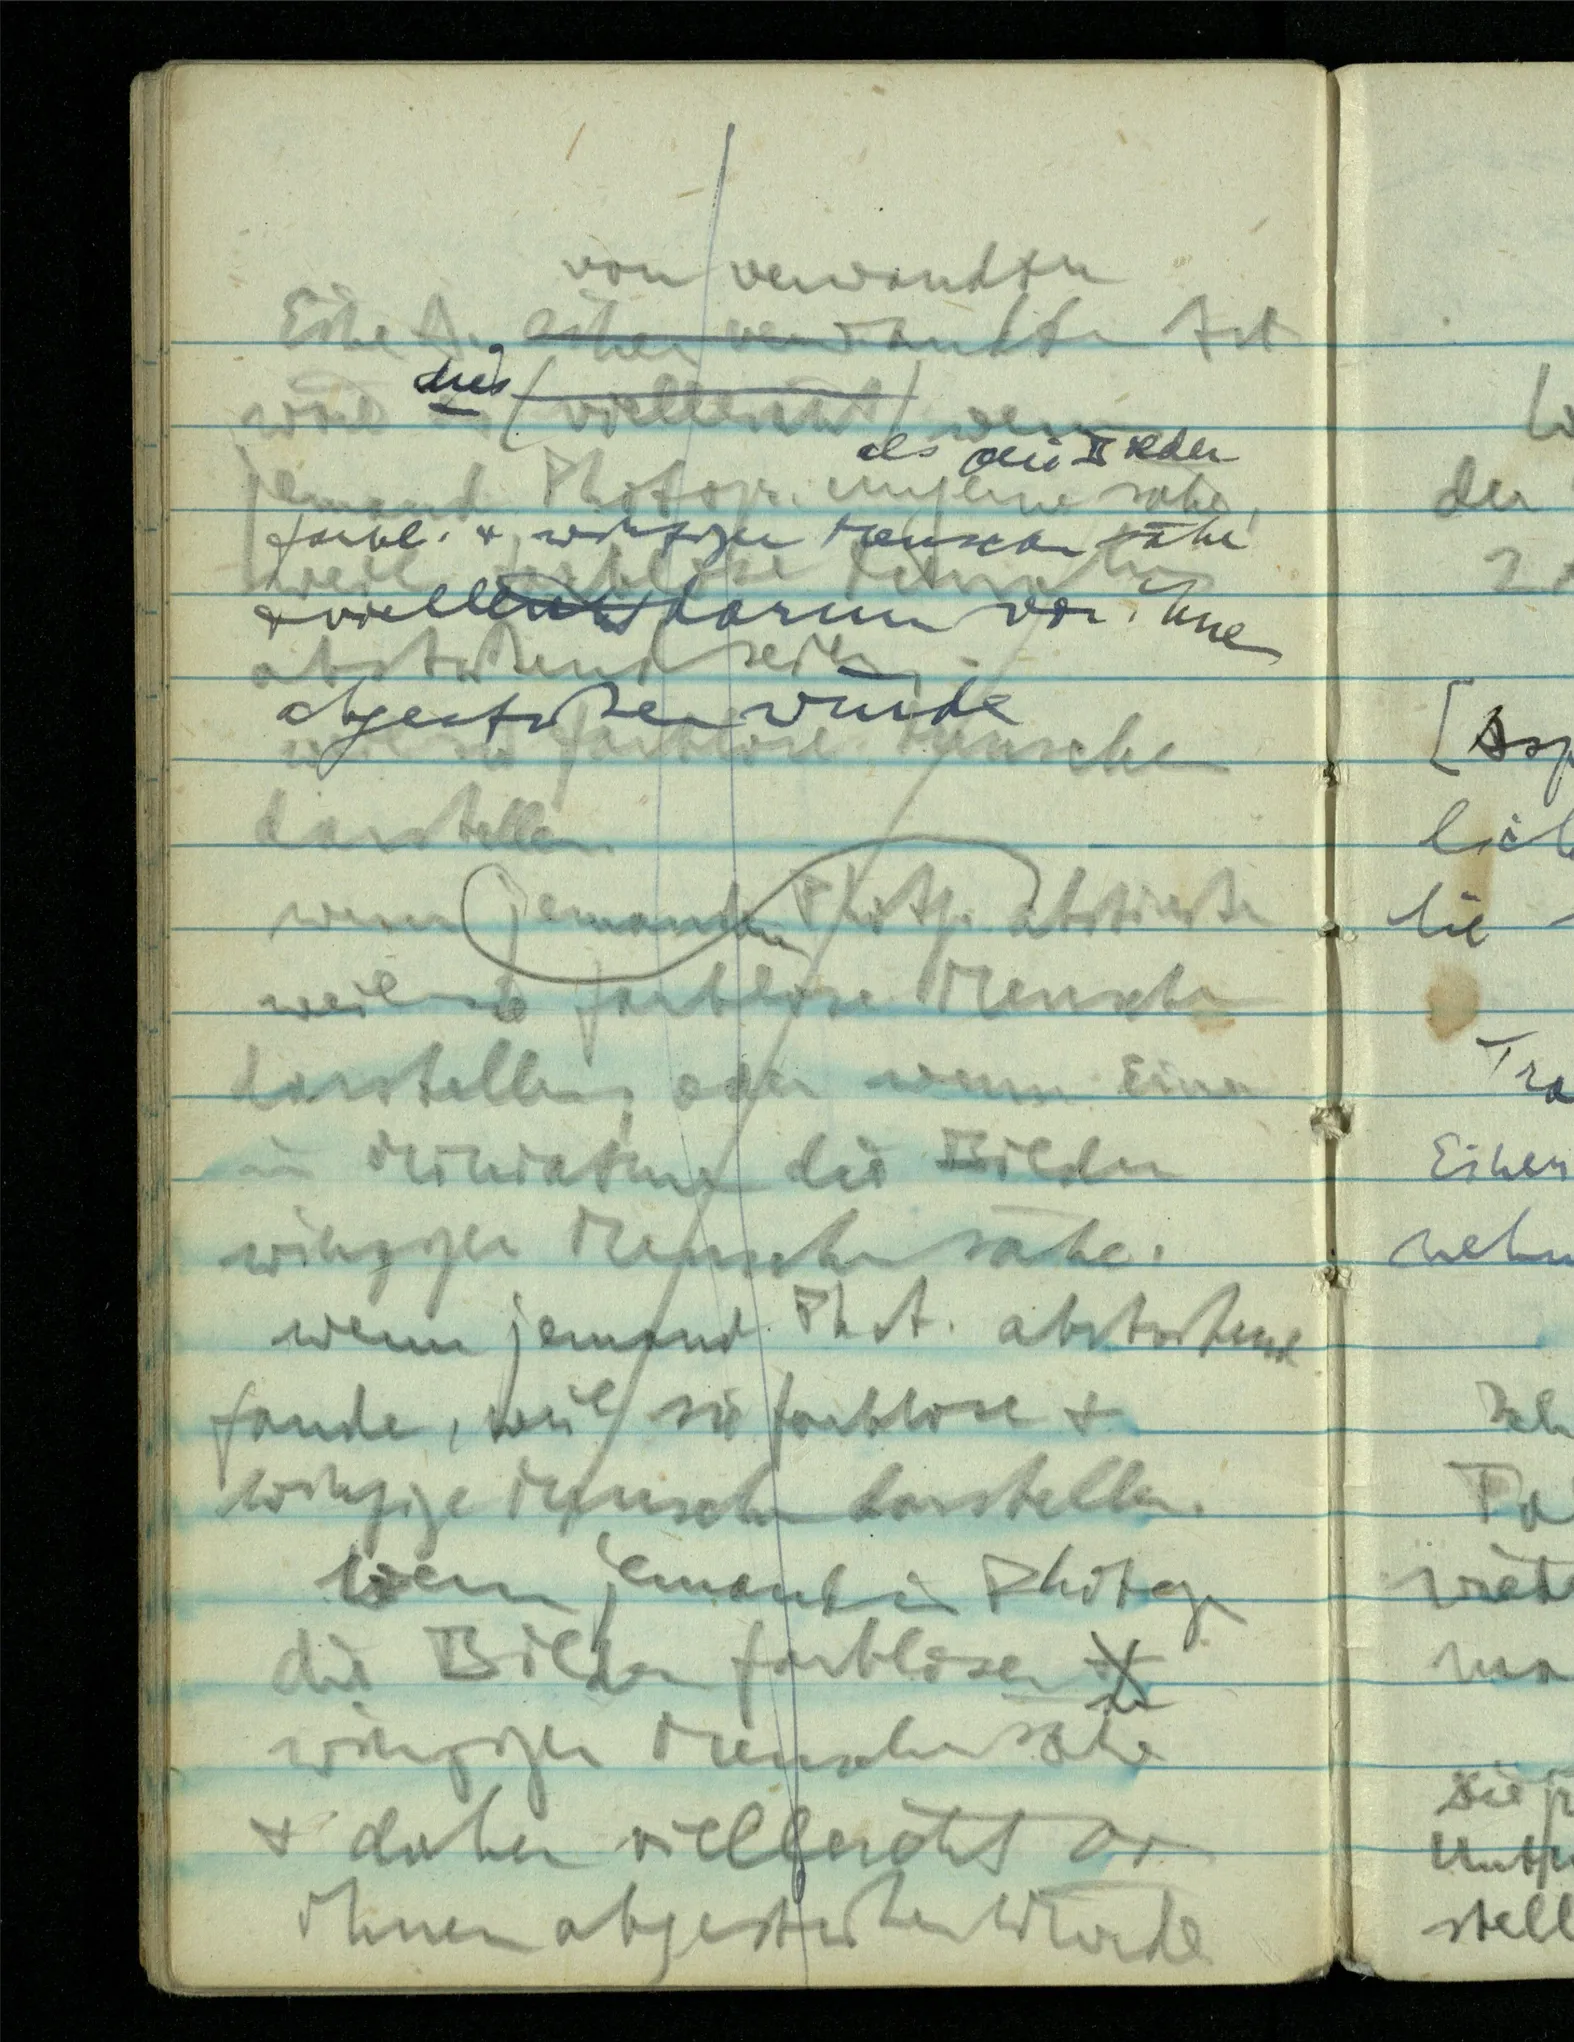 von verwandter
Eine A. einer verwandten Art
wäre es dies (vielleicht) wenn
als die Bilder
jemand Photogr. ungerne sähe,
farbl. & winziger Menschen sähe
weil farblose
& vielleicht darum von ihnen
abstoßend seien,
abgestoßen würde
weil sie farblose Menschen
darstellen.
wenn jemanden Photogr. abstießen
weil sie farblose Menschen
darstellen, oder wenn Einer
in Miniaturen die Bilder
winziger Menschen sähe.
wenn jemand Phot. abstoßend
fände, weil sie farblose &
winzige Menschen darstellen.
Wenn jemand in Photogr
die Bilder farbloser &
winziger Menschen sähe
& daher vielleicht von
ihnen abgestoßen würde
der
2
[Asp
lich
die
Tra
Einer
nehm
Ich
Fal
ma
sie
stell